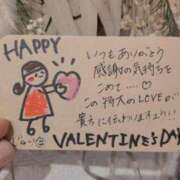 HAPPY
いつもありがとう
感謝の気持ちを
こめて.....♡
この特大のLOVEが
貴方に伝わりますように!!
VALENTINE'S DAY